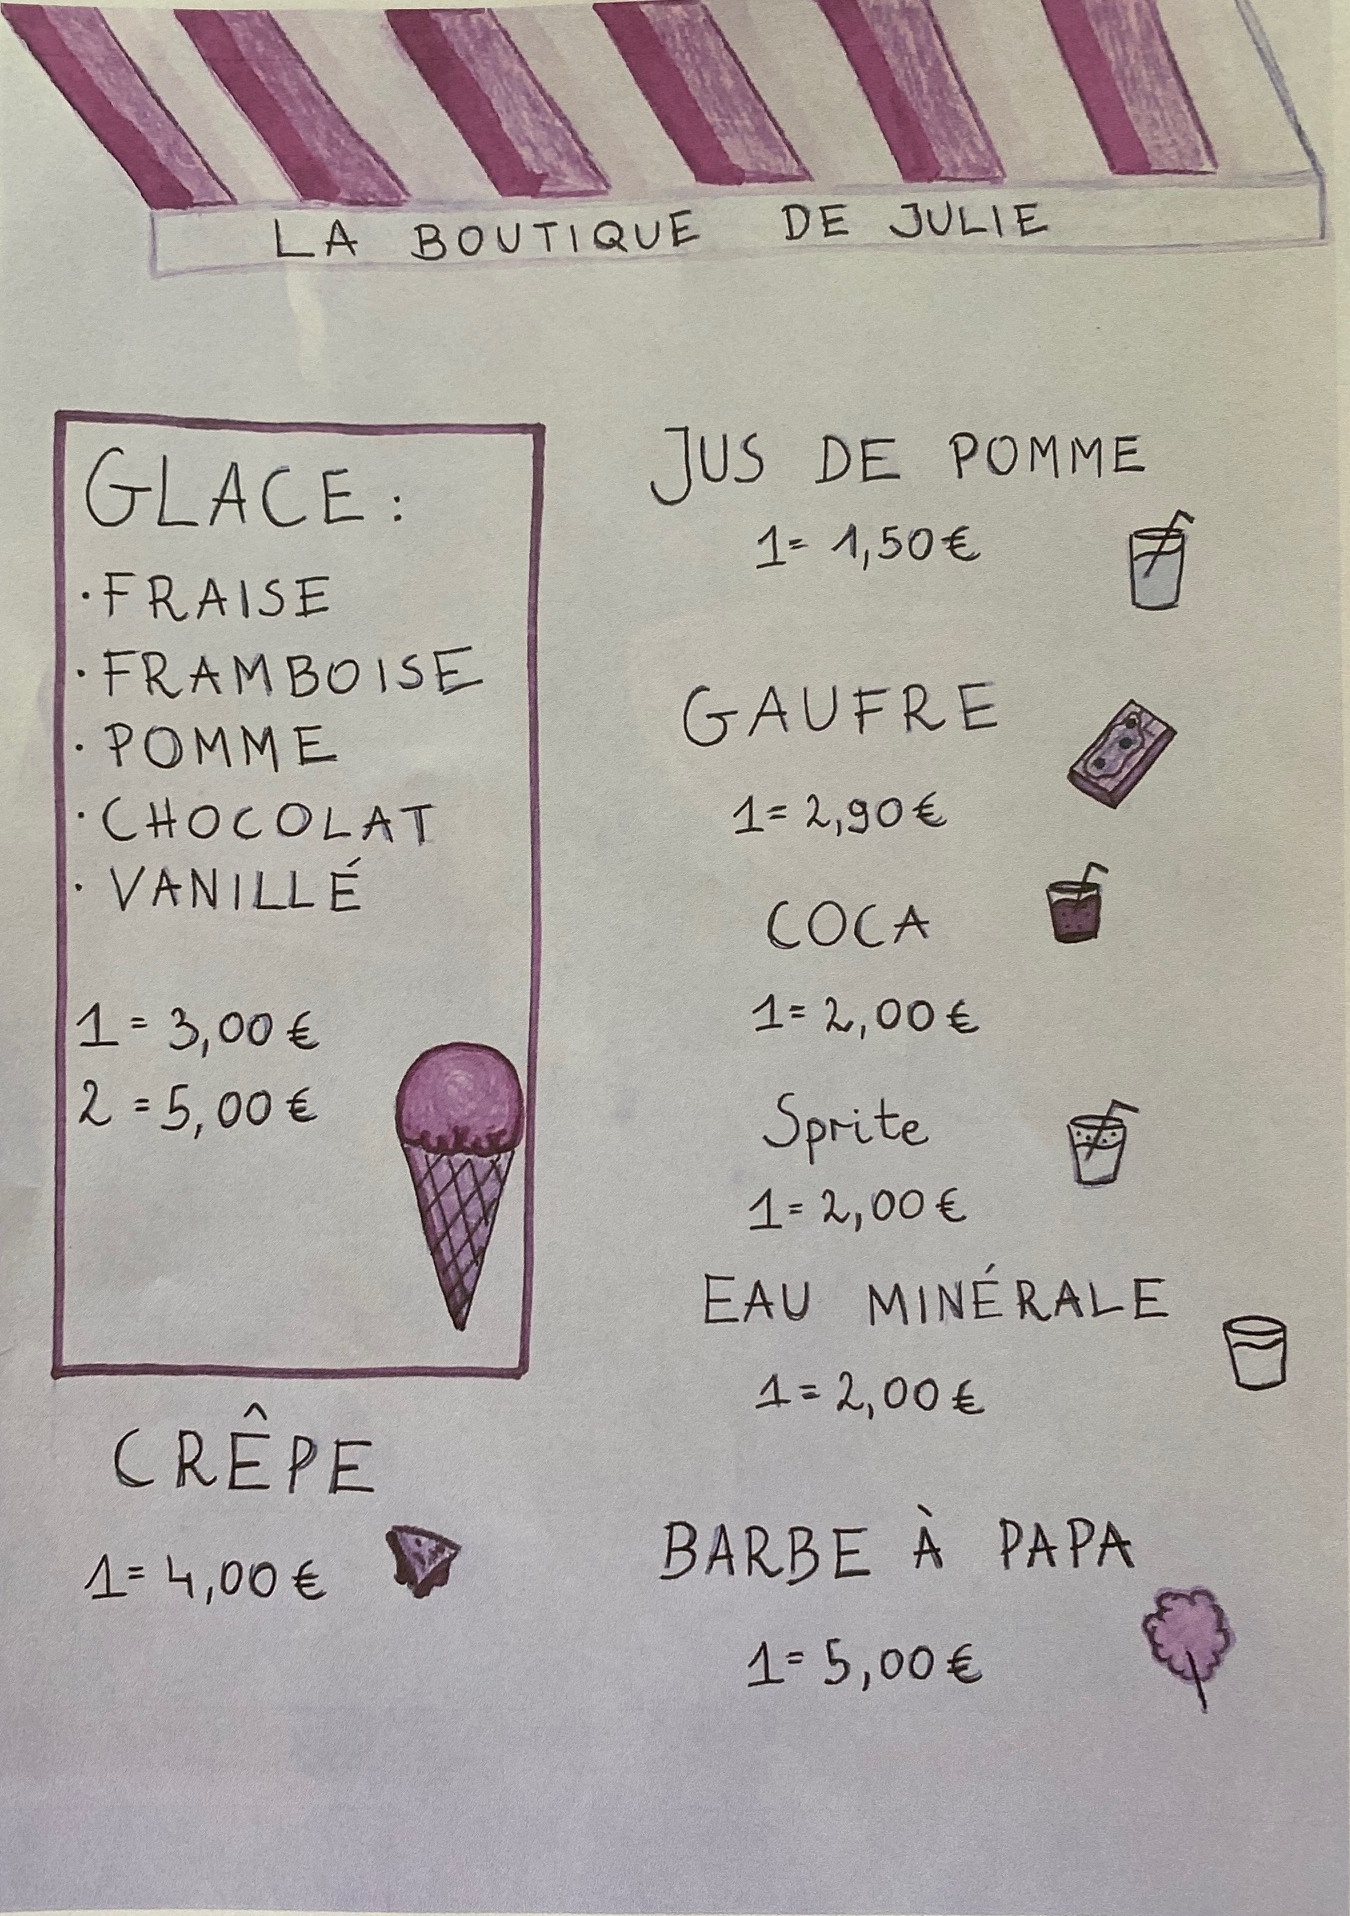 LA BOUTIQUE DE JULIE
GLACE :
· FRAISE
· FRAMBOISE
· POMME
· CHOCOLAT
· VANILLÉ
1 = 3,00 €
2 = 5,00 €
CRÊPE
1 = 4,00 €
JUS DE POMME
1 = 1,50 €
GAUFRE
1 = 2,90 €
COCA
1 = 2,00 €
Sprite
1 = 2,00 €
EAU MINÉRALE
1 = 2,00 €
BARBE À PAPA
1 = 5,00 €